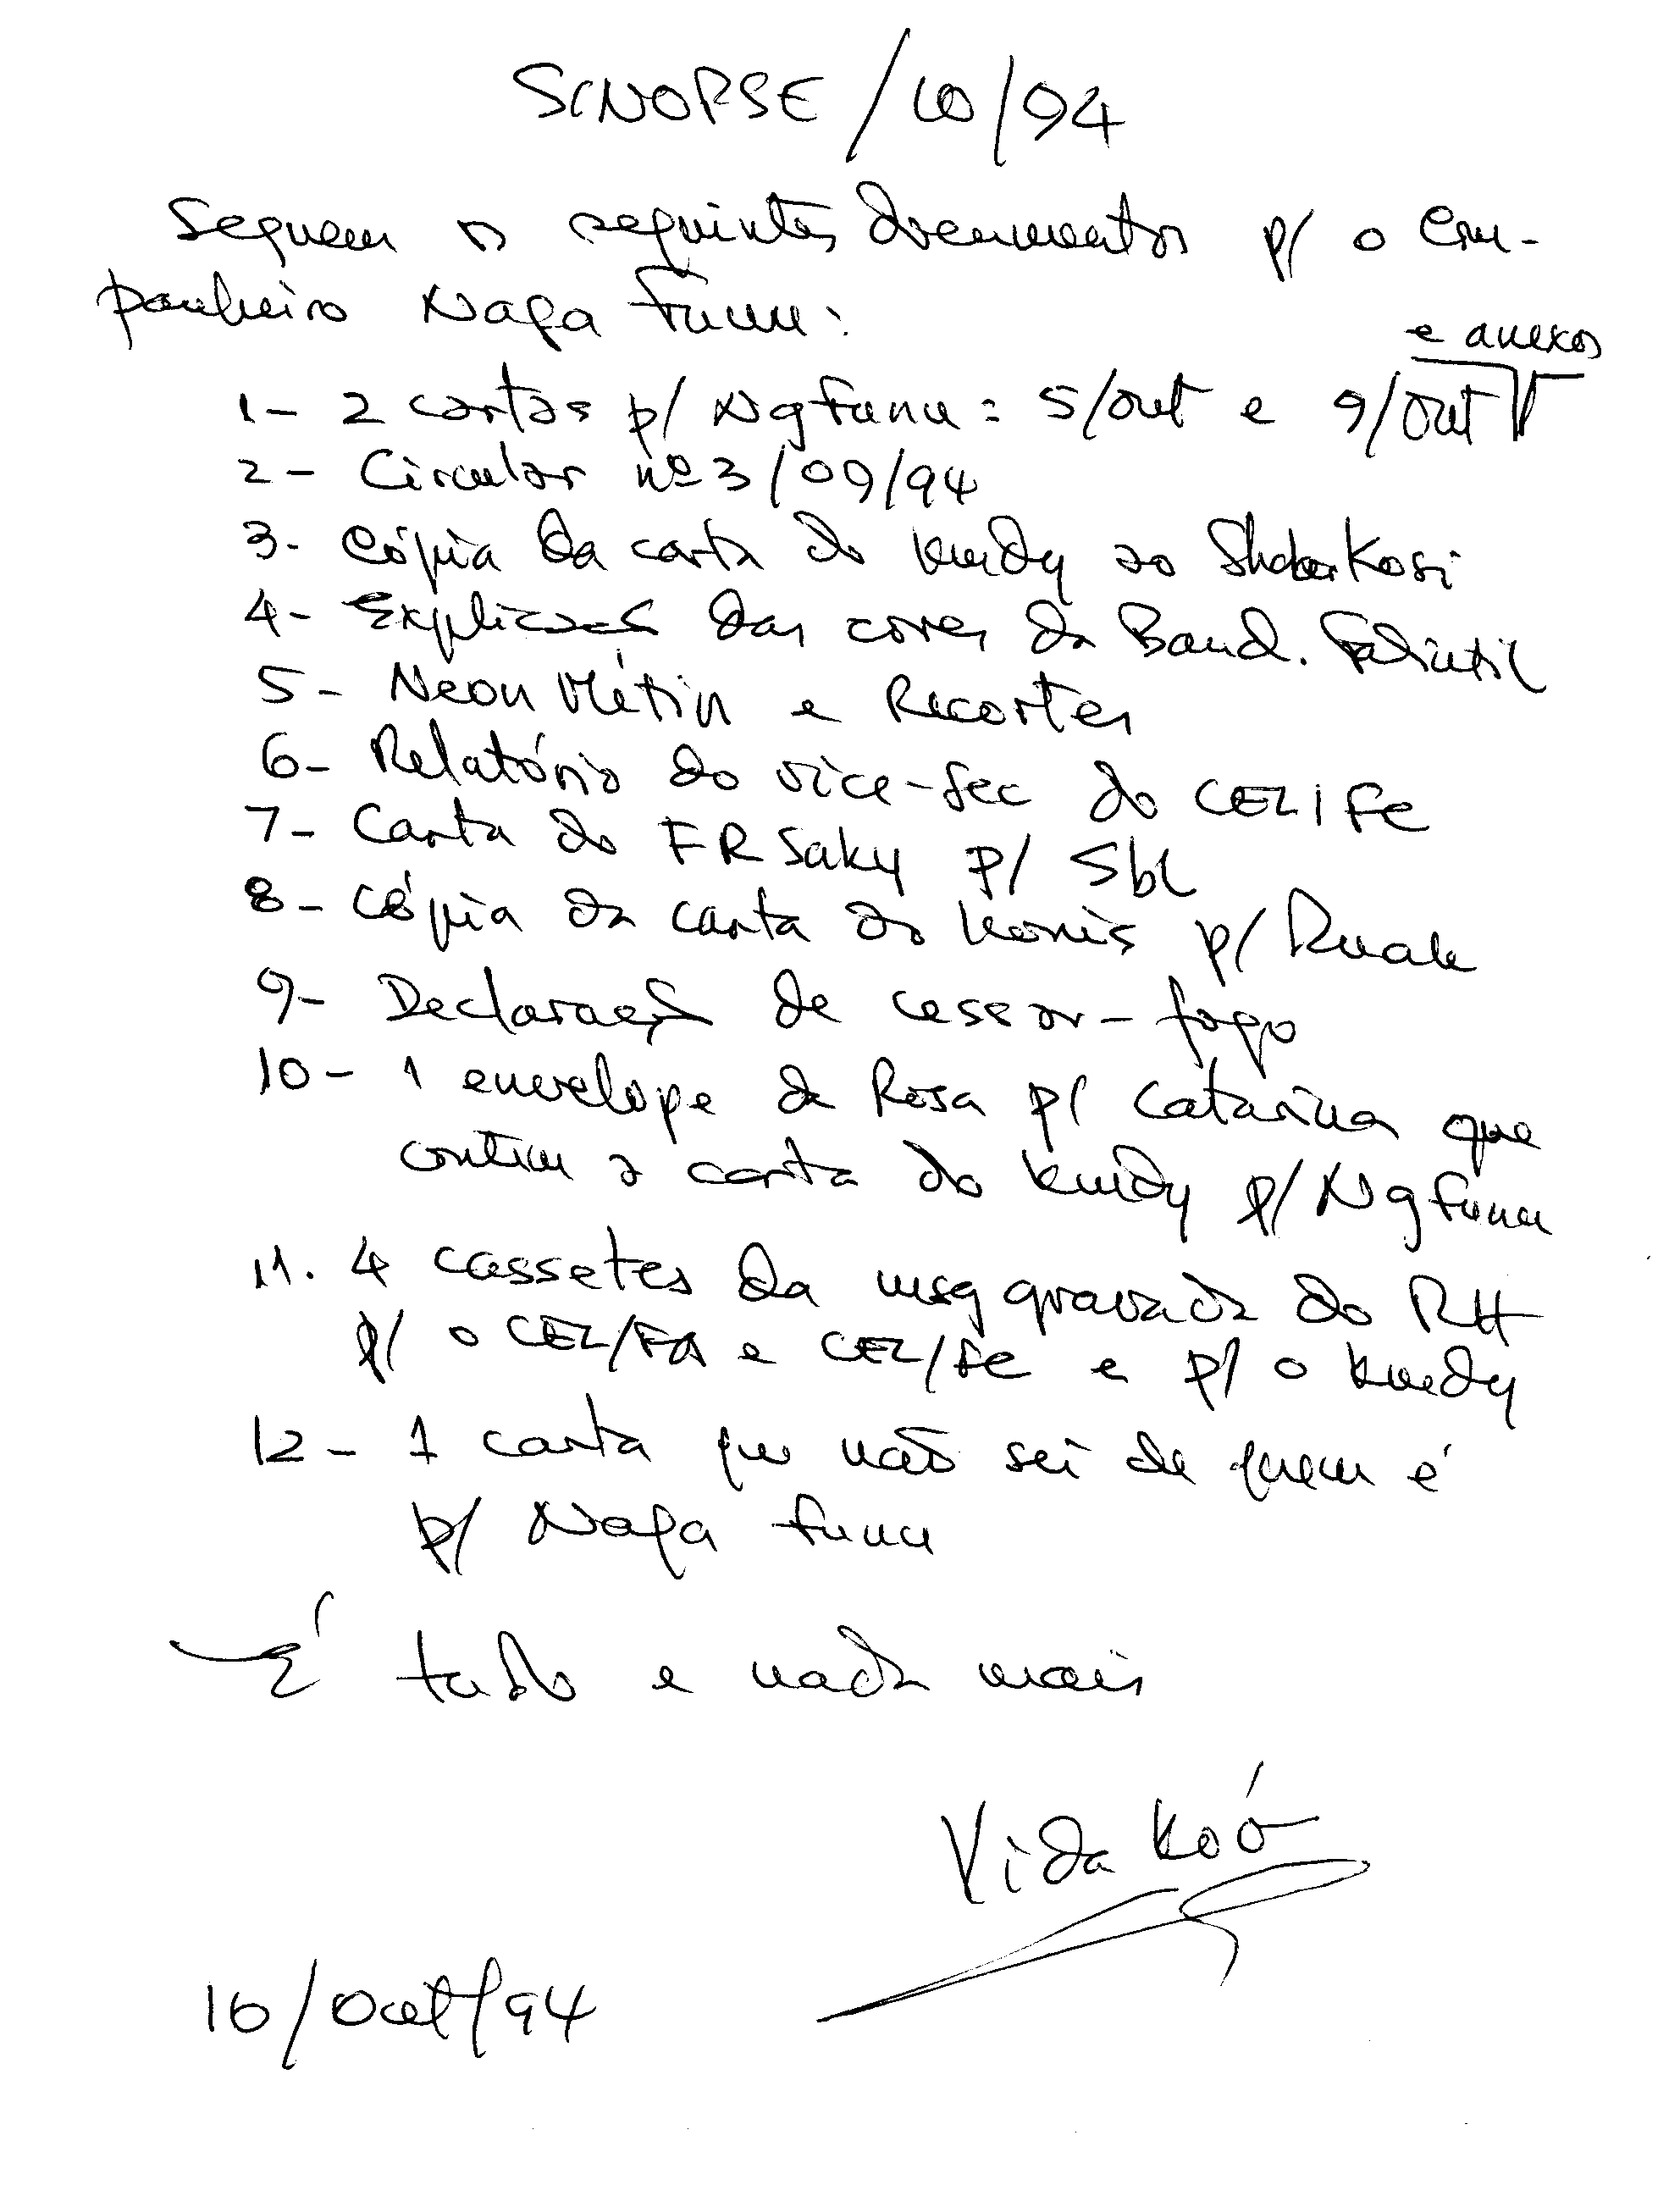 SINOPSE/10/94
Seguem os seguintes documentos p/ o com-
panheiro Naga Funu:
e anexos
1- 2 cartas p/ Ng Funu: 5/out e 9/out
2- Circular nº 3/09/94
3- Cópia da carta do Kuidy ao
4- Explicação das cores da Band. Falintil
5- Neon Métin e Recortes
6- Relatório do vice-sec do CEL/FE
7- Carta do FR Saky p/ Sbl
8- Cópia da carta do Konis p/ Ruak
9- Declaração de cessar-fogo
10- 1 envelope da Rosa p/ Catarina que
contém a carta do Kuidy p/ Ng Funu
11. 4 cassetes da msg gravada do RH
p/ o CEL/FA e CEL/FE e p/ o Kuidy
12- 1 carta que não sei de quem é
p/ Naga Funu
É tudo e nada mais
Vida Koó
16/Out/94